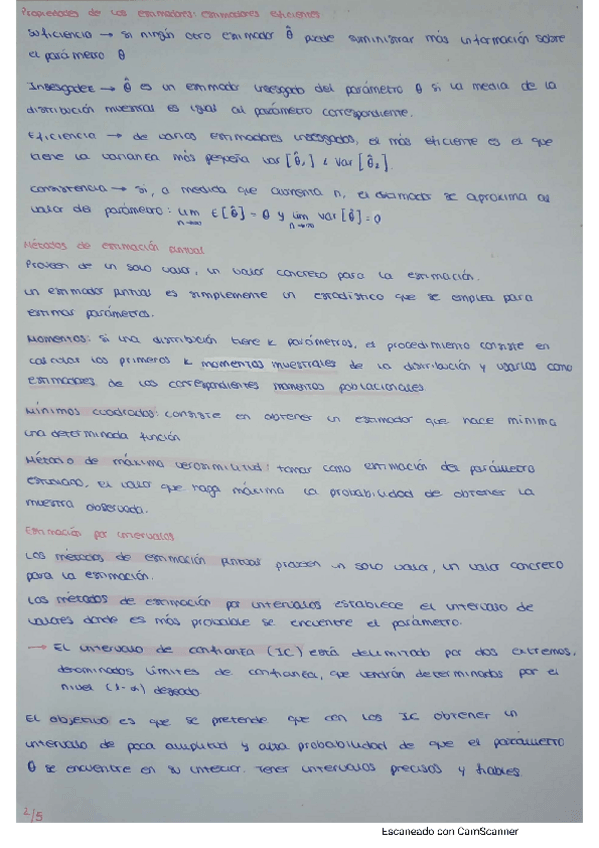 Propiedades de los estimadores: estimadores eficientes
Suficiencia → si ningún otro estimador θ̂ puede suministrar más información sobre
el parámetro θ
Insesgadez → θ̂ es un estimador insesgado del parámetro θ si la media de la
distribución muestral es igual al parámetro correspondiente.
Eficiencia → de varios estimadores insesgados, el más eficiente es el que
tiene la varianza más pequeña var [θ̂₁] < Var [θ̂₂].
Consistencia → si, a medida que aumenta n, el estimador se aproxima al
valor del parámetro: lim n→∞ E[θ̂] = θ y lim n→∞ var[θ̂] = 0
Métodos de estimación puntual
Proveen de un solo valor, un valor concreto para la estimación.
Un estimador puntual es simplemente un estadístico que se emplea para
estimar parámetros.
Momentos: Si una distribución tiene k parámetros, el procedimiento consiste en
calcular los primeros k momentos muestrales de la distribución y usarlos como
estimadores de los correspondientes momentos poblacionales
Mínimos cuadrados: consiste en obtener un estimador que hace mínima
una determinada función
Método de máxima verosimilitud: tomar como estimación del parámetro
estudiado, el valor que haga máxima la probabilidad de obtener la
muestra observada.
Estimación por intervalos
Los métodos de estimación puntual proveen un solo valor, un valor concreto
para la estimación.
Los métodos de estimación por intervalos establece el intervalo de
valores donde es más probable se encuentre el parámetro.
→ El intervalo de confianza (IC) está delimitado por dos extremos,
denominados límites de confianza, que vendrán determinados por el
nivel (1-α) deseado
El objetivo es que se pretende que con los IC obtener un
intervalo de poca amplitud y alta probabilidad de que el parámetro
θ se encuentre en su interior. Tener intervalos precisos y fiables
2/5
Escaneado con CamScanner